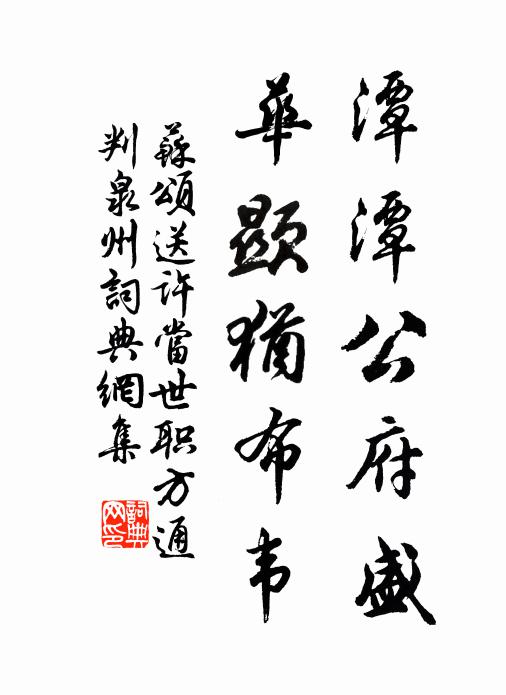 潭潭公府盛
華顯猶布韦
蘇頌送許當世职方通
判泉州詞典網集
詞典
网印